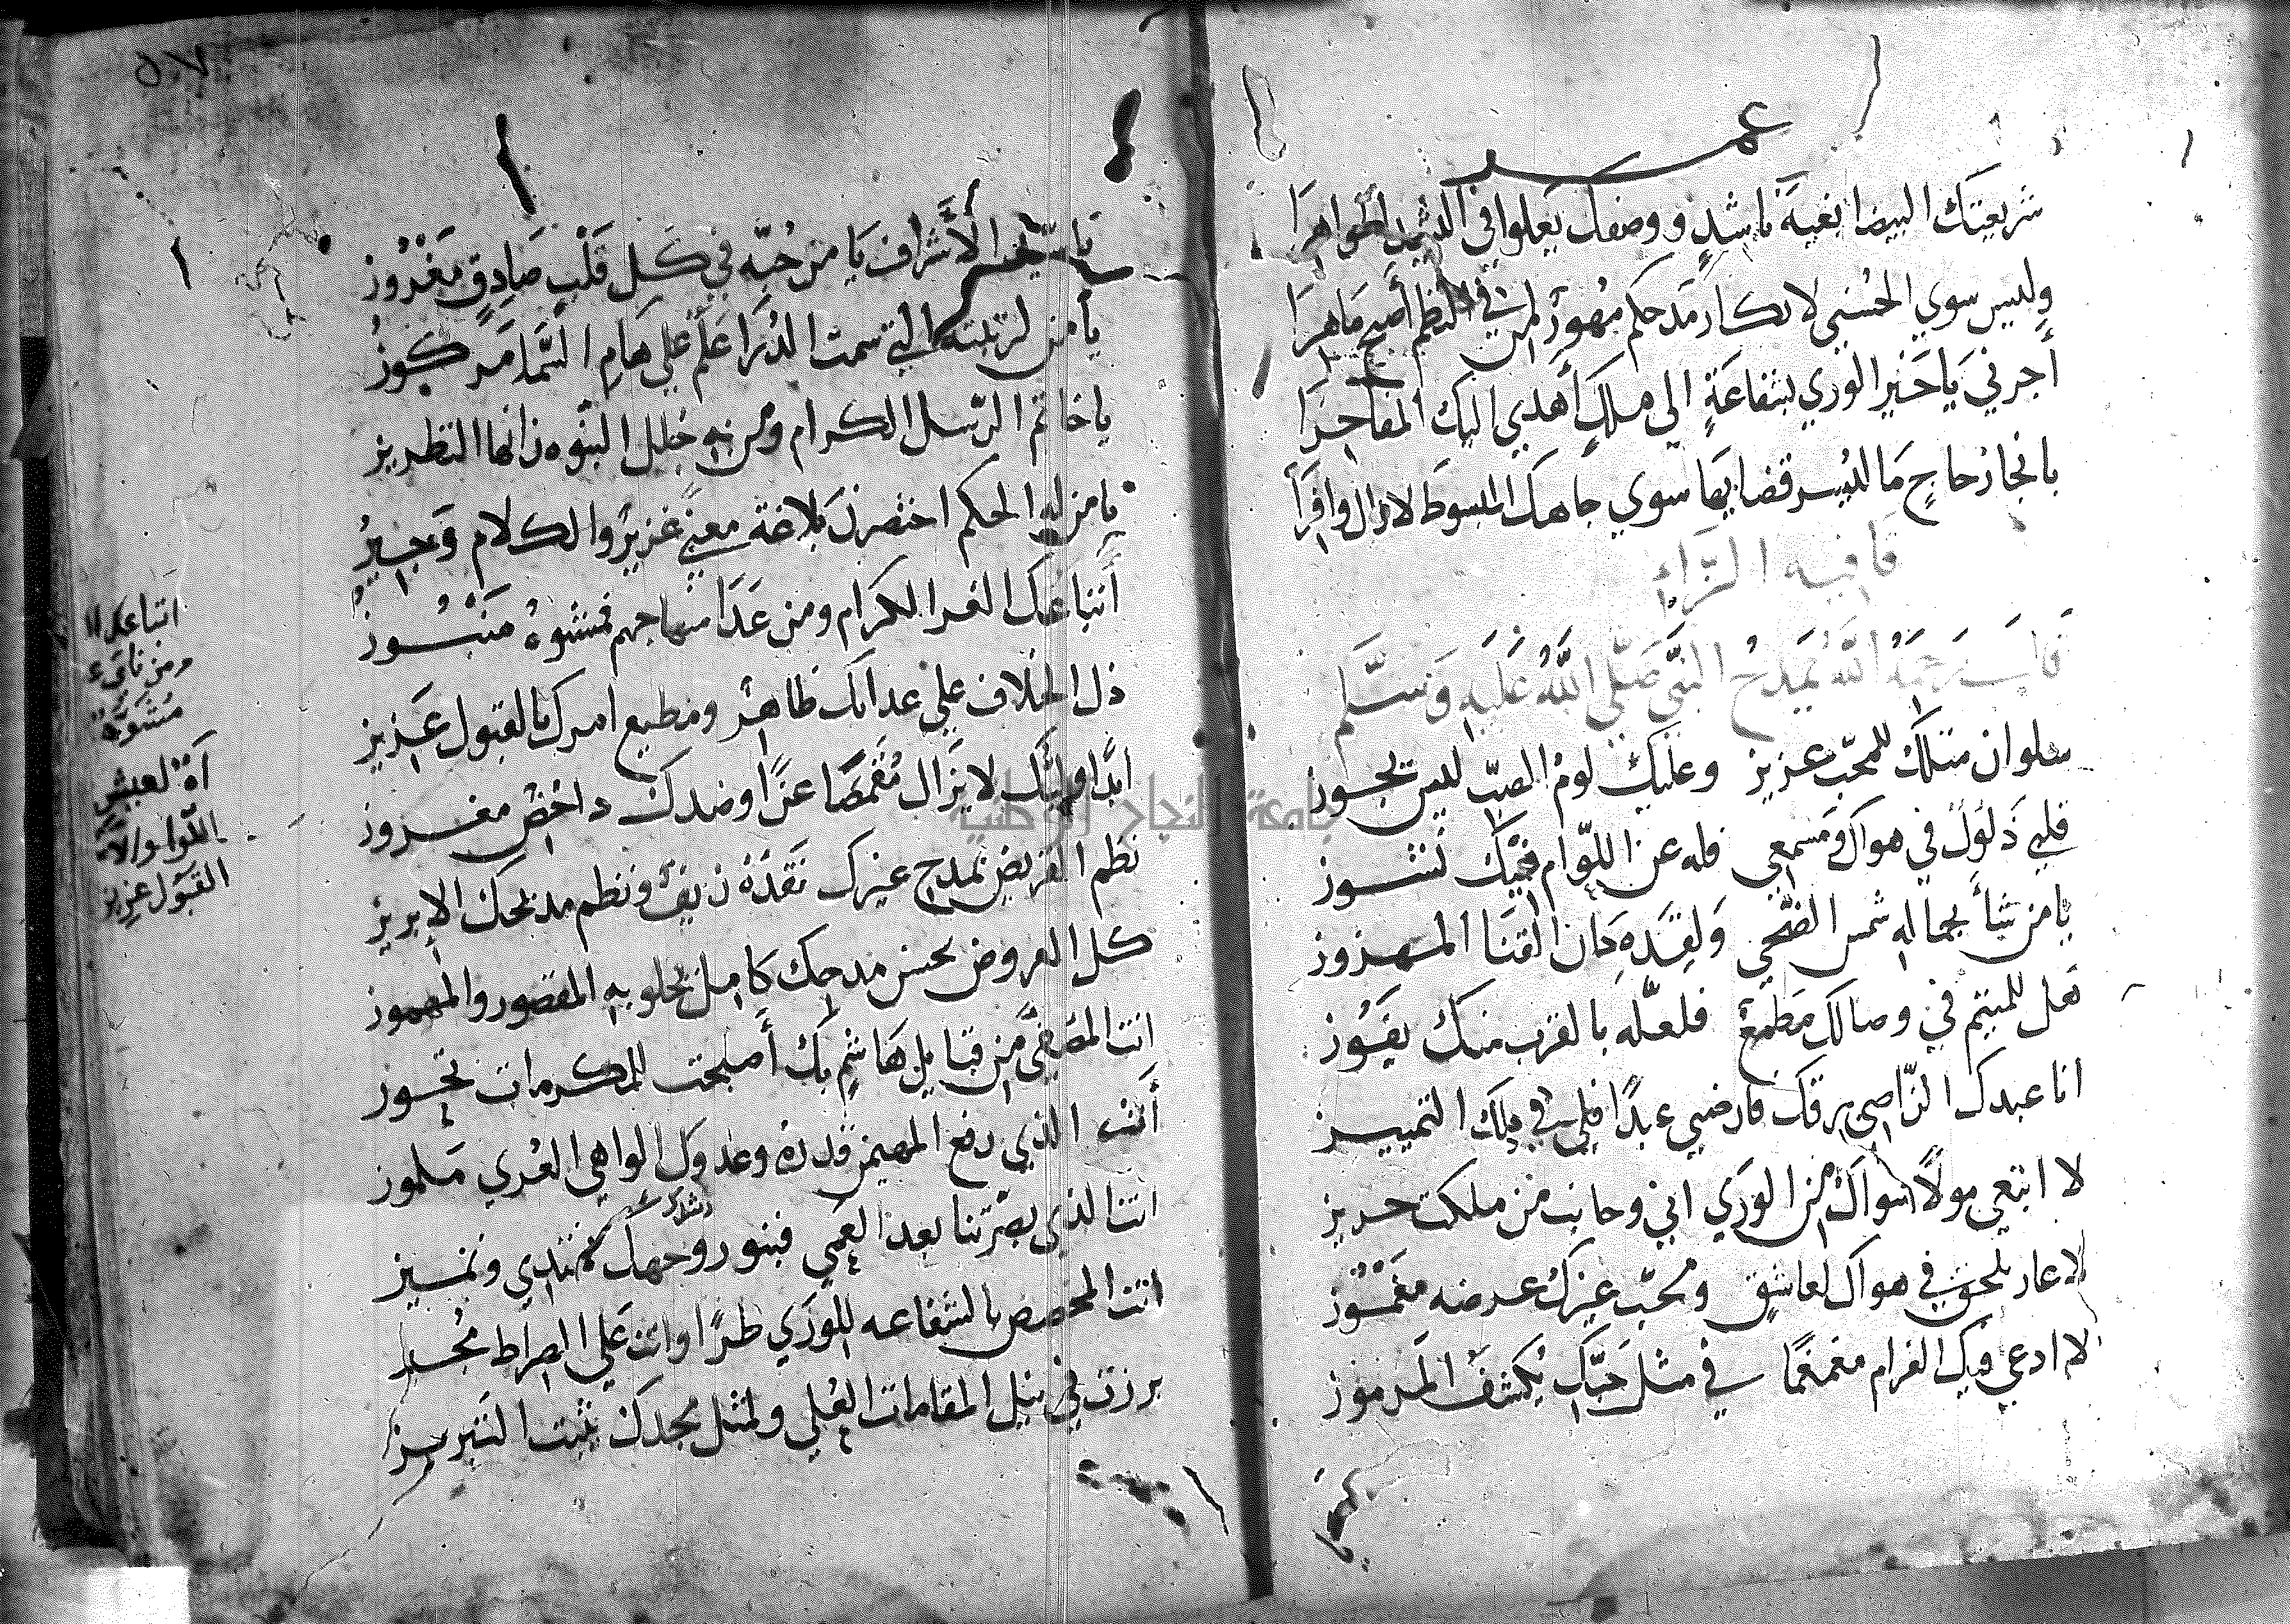 شريعتك البيضا بغية ناشد ووصفك يعلوا في
وليس سوي الحسني لابكار مدحكم مهور لمن في النظم أصبح ماهرا
أجرني يا خير الوري بشفاعة الي ملك أهدي اليك المفاخرا
بانجاز حاج ما لتيسير قضايها سوي جاهك المبسوط لا زال وافرا
قافية الزاي
قال رحمه الله يمدح النبي صلي الله عليه وسلم
سلوان مثلك للمحب عزيز وعليك لوم الصب ليس يجوز
قلبي ذلول في هواك ومسمعي فله عن اللوام فيك نشوز
يا من شأى بجماله شمس الضحي ولقده دان القنا المهزوز
هل للمتيم في وصالك مطمع فلعله بالقرب منك يفوز
انا عبدك الراضي برقك فارضي عبدا فلي في ذلك التمييز
لا ابتغي مولا سواك من الوري اني وجانب من ملكت حريز
لا عار يلحق في هواك لعاشق ومحب غيرك عرضه مغموز
لا ادعي فيك الغرام مغمغما في مثل حبك يكشف المرموز
٥٧
يا سيد الأشراف يا من حبه في كل قلب صادق مغروز
يا من لرتبته التي سمت الذرا علم علي هام السما مركوز
يا خاتم الرسل الكرام ومن به حلل النبوه زانها التطريز
يا من له الحكم اختصرن بلاغة معني غزير والكلام وجيز
أتباعك الغر الكرام ومن عدا منهاجهم فمشوه منبوز
ذل الخلاف علي عداتك ظاهر ومطيع امرك بالقبول عزيز
ابدا وليك لا يزال مقمصا عزا وضدك داحض مغروز
نظم القريض بمدح غيرك نقده زيف ونظم مديحك الابريز
كل العروض بحسن مدحك كامل يحلو به المقصور والمهموز
انت المصفي من قبايل هاشم بك أصبحت للمكرمات تحوز
أنت الذي رفع المهيمن قدره وعدوك الواهي العري ملموز
انت الذي بصرتنا بعد العمي فبنور وجهك نهتدي ونميز
انت المخصص بالشفاعه للوري طرا وانت علي الصراط مجيز
برزت في نيل المقامات العلي ولمثل مجدك يثبت التبريز
اتباعك
ومن
مشوه
القبول عزيز
جامعة النجاح الوطنية